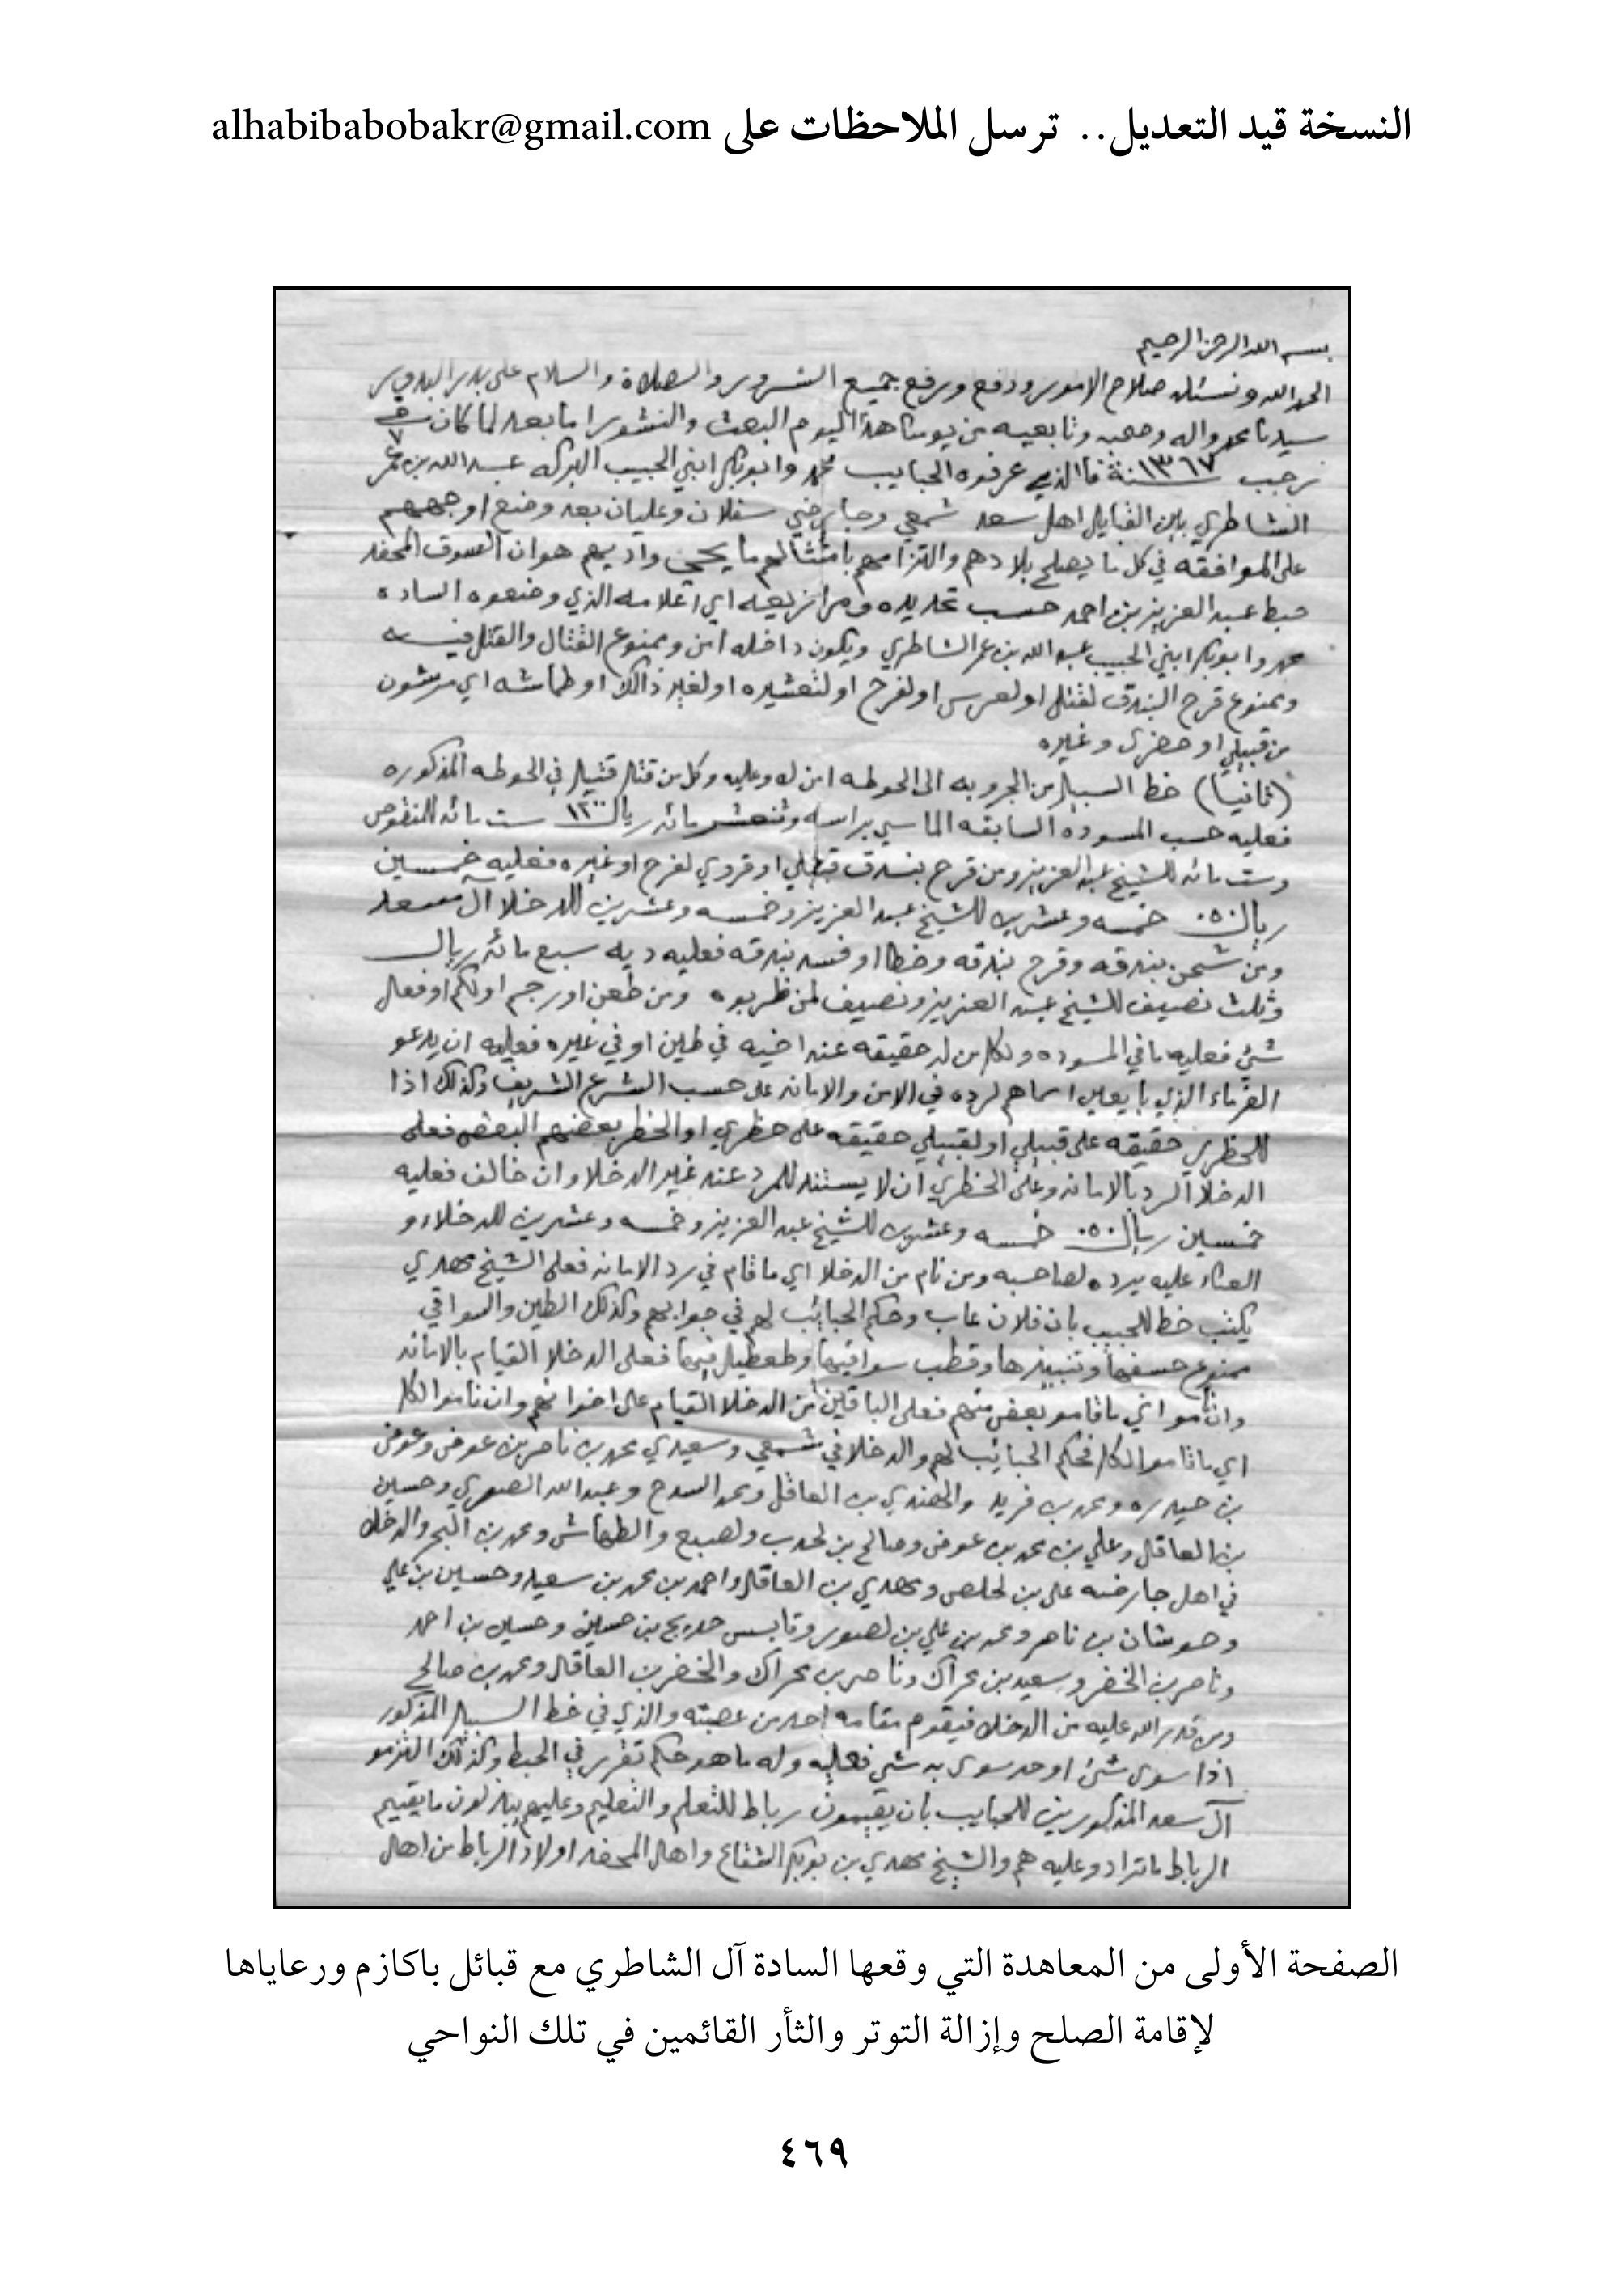 النسخة قيد التعديل.. ترسل الملاحظات على alhabibabobakr@gmail.com
بسم الله الرحمن الرحيم
الحمد لله ونسئله صلاح الامور ودفع ورفع جميع الشرور والصلاة والسلام على بدر البدور
سيدنا محمد واله وصحبه وتابعيه من يومنا هذا اليوم البعث والنشور اما بعد لما كان في ٧
رجب سنة ١٣٦٧ فالذي عرفوه الحبايب محمد وابوبكر ابني الحبيب البركه عبدالله بن عمر
الشاطري باين القبايل اهل سعد شمعي وجبارضي سفلان وعليان بعد وضع اوجههم
على الموافقه في كل ما يصلح بلادهم والتزامهم بامتثالهم ما يحيي واديهم هو ان السوق المحفد
حبط عبد العزيز بن احمد حسب تحديده ومرازيعه اي اعلامه الذي وضعوه الساده
محمد وابوبكر ابني الحبيب عبدالله بن عمر الشاطري ويكون داخله امن وممنوع القتال والقتل فيه
وممنوع قرح البندق لقتل او لعرس او لفرح او لتعشيره او لغير ذالك او طماشه اي مرشون
من قبيلي او حضري وغيره
(ثانيا) خط السبيل من الجروبه الى الحوطه امن له وعليه وكل من قتل قتيل في الحوطه المذكوره
فعليه حسب المسوده السابقه الماسي براسه وثنعشر مائه ريال ١٢٠٠ ست مائه للمنقوص
وست مائه للشيخ عبد العزيز ومن قرح بندق قبيلي او قروي لفرح او غيره فعليه خمسين
ريال ٥٠ خمسه وعشرين للشيخ عبد العزيز وخمسه وعشرين للدخلا آل سعد
ومن شحن بندقه وقرح بندقه وخطا او فسد بندقه فعليه ديه سبع مائه ريال
وثلث نصيف للشيخ عبد العزيز ونصيف لمن ظربوه ومن طعن او رجم او لكم او فعال
شئ فعليه ما في المسوده ولكل من له حقيقه عند اخيه في طين او في غيره فعليه ان يدعو
الغرماء الذي بايعلي اسماهم لرده في الامن والامانه على حسب الشرع الشريف وكذلك اذا
للحظري حقيقه على قبيلي او لقبيلي حقيقه على حظري او الحظر بعضهم البعض فعلى
الدخلا الرد بالامانه وعلى الحظري ان لا يستند للمرد عند غير الدخلا وان خالف فعليه
خمسين ريال ٥٠ خمسه وعشرين للشيخ عبد العزيز وخمسه وعشرين للدخلاء و
العناء عليه يرده لصاحبه ومن نام من الدخلا اي ما قام في رد الامانه فعلى الشيخ مهدي
يكتب خط للحبيب بان فلان عاب وحكم الحبائب لهم في جوابهم وكذلك الطين والسواقي
ممنوع خسفها وتنبيذرها وقطب سواقيها وطعطيل فيها فعلى الدخلا القيام بالامانه
وان نامو اي ما قامو بعض منهم فعلى الباقين من الدخلا القيام على اخوانهم وان نامو الكل
اي ما قامو الكل فحكم الحبائب لهم والدخلا في شمعي وسعيدي محمد بن ناصر بن عوض وعوض
بن حيدره ومحمد بن فريد والهندي بن العاقل ومحمد السدح وعبدالله الصعري وحسين
بن العاقل وعلي بن محمد بن عوض وصالح بن لحدب ولصبع والطماش ومحمد بن البح والدخلا
في اهل جارضه علي بن لخلص ومهدي بن العاقل واحمد بن محمد بن سعيد وحسين بن علي
وحوشان بن ناصر ومحمد بن علي بن لصور وقابس حديج بن حسين وحسين بن احمد
وناصر بن الخضر وسعيد بن محراك وناصر بن محراك والخضر بن العاقل ومحمد بن صالح
ومن قدر الله عليه من الدخلا فيقوم مقامه احد من عصبته والذي في خط السبيل المذكور
اذا سوى شئ او حد سوى به شي فعليه وله ما هو حكم تقرر في الحبط وكذلك التزمو
آل سعد المذكورين للحبايب بان يقيمون رباط للتعلم والتعليم وعليهم يبذلون ما يقيم
الرباط ما تراد وعليه هم والشيخ مهدي بن بوبكر الشقاع واهل المحفد اولاد الرباط من اهل
الصفحة الأولى من المعاهدة التي وقعها السادة آل الشاطري مع قبائل باكازم ورعاياها
لإقامة الصلح وإزالة التوتر والثأر القائمين في تلك النواحي
٤٦٩